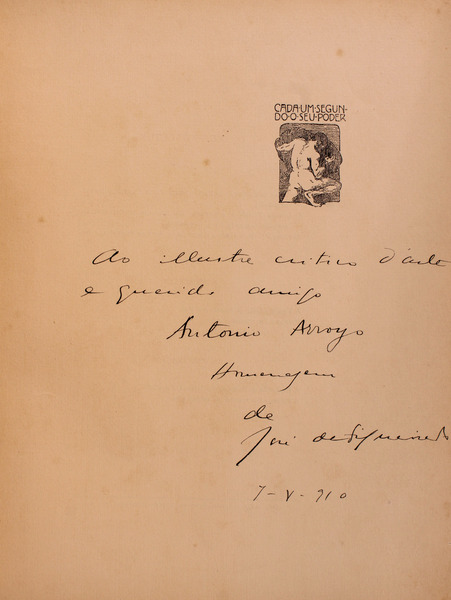 CADA·UM·SEGUN-
DO·O·SEU·PODER
Ao illustre critico d'arte
e querido amigo
Antonio Arroyo
Homenagem
de
José de Figueiredo
7-V-910